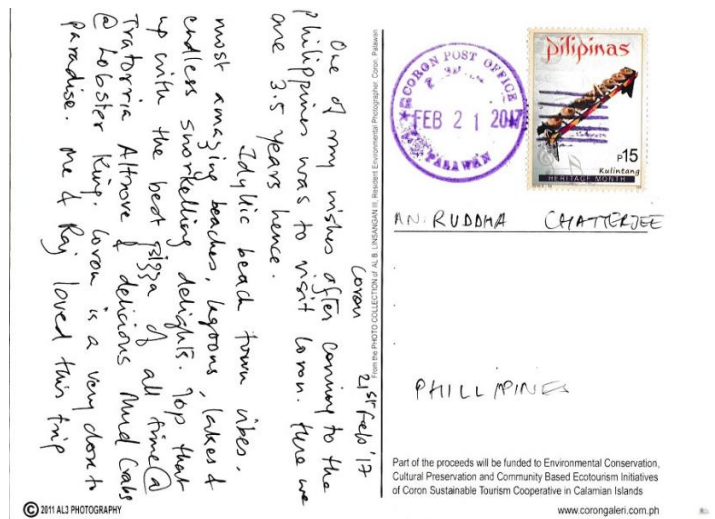 Coron
21st Feb '17
One of my wishes after coming to the
Philippines was to visit Coron. Here we
are 3.5 years hence.
Idyllic beach town vibes,
most amazing beaches, lagoons, lakes &
endless snorkelling delights. Top that
up with the best pizza of all time @
Tratorria Altrove & delicious Mud Crabs
@ Lobster King. Coron is a very close to
paradise. Me & Raj loved this trip
© 2011 AL3 PHOTOGRAPHY
From the PHOTO COLLECTION of AL B. LINSANGAN III, Resident Environmental Photographer Coron, Palawan
CORON POST OFFICE
FEB 21 2017
PALAWAN
pilipinas
P15
Kulintang
HERITAGE MONTH
ANIRUDDHA CHATTERJEE
PHILLIPINES
Part of the proceeds will be funded to Environmental Conservation,
Cultural Preservation and Community Based Ecotourism Initiatives
of Coron Sustainable Tourism Cooperative in Calamian Islands
www.corongaleri.com.ph